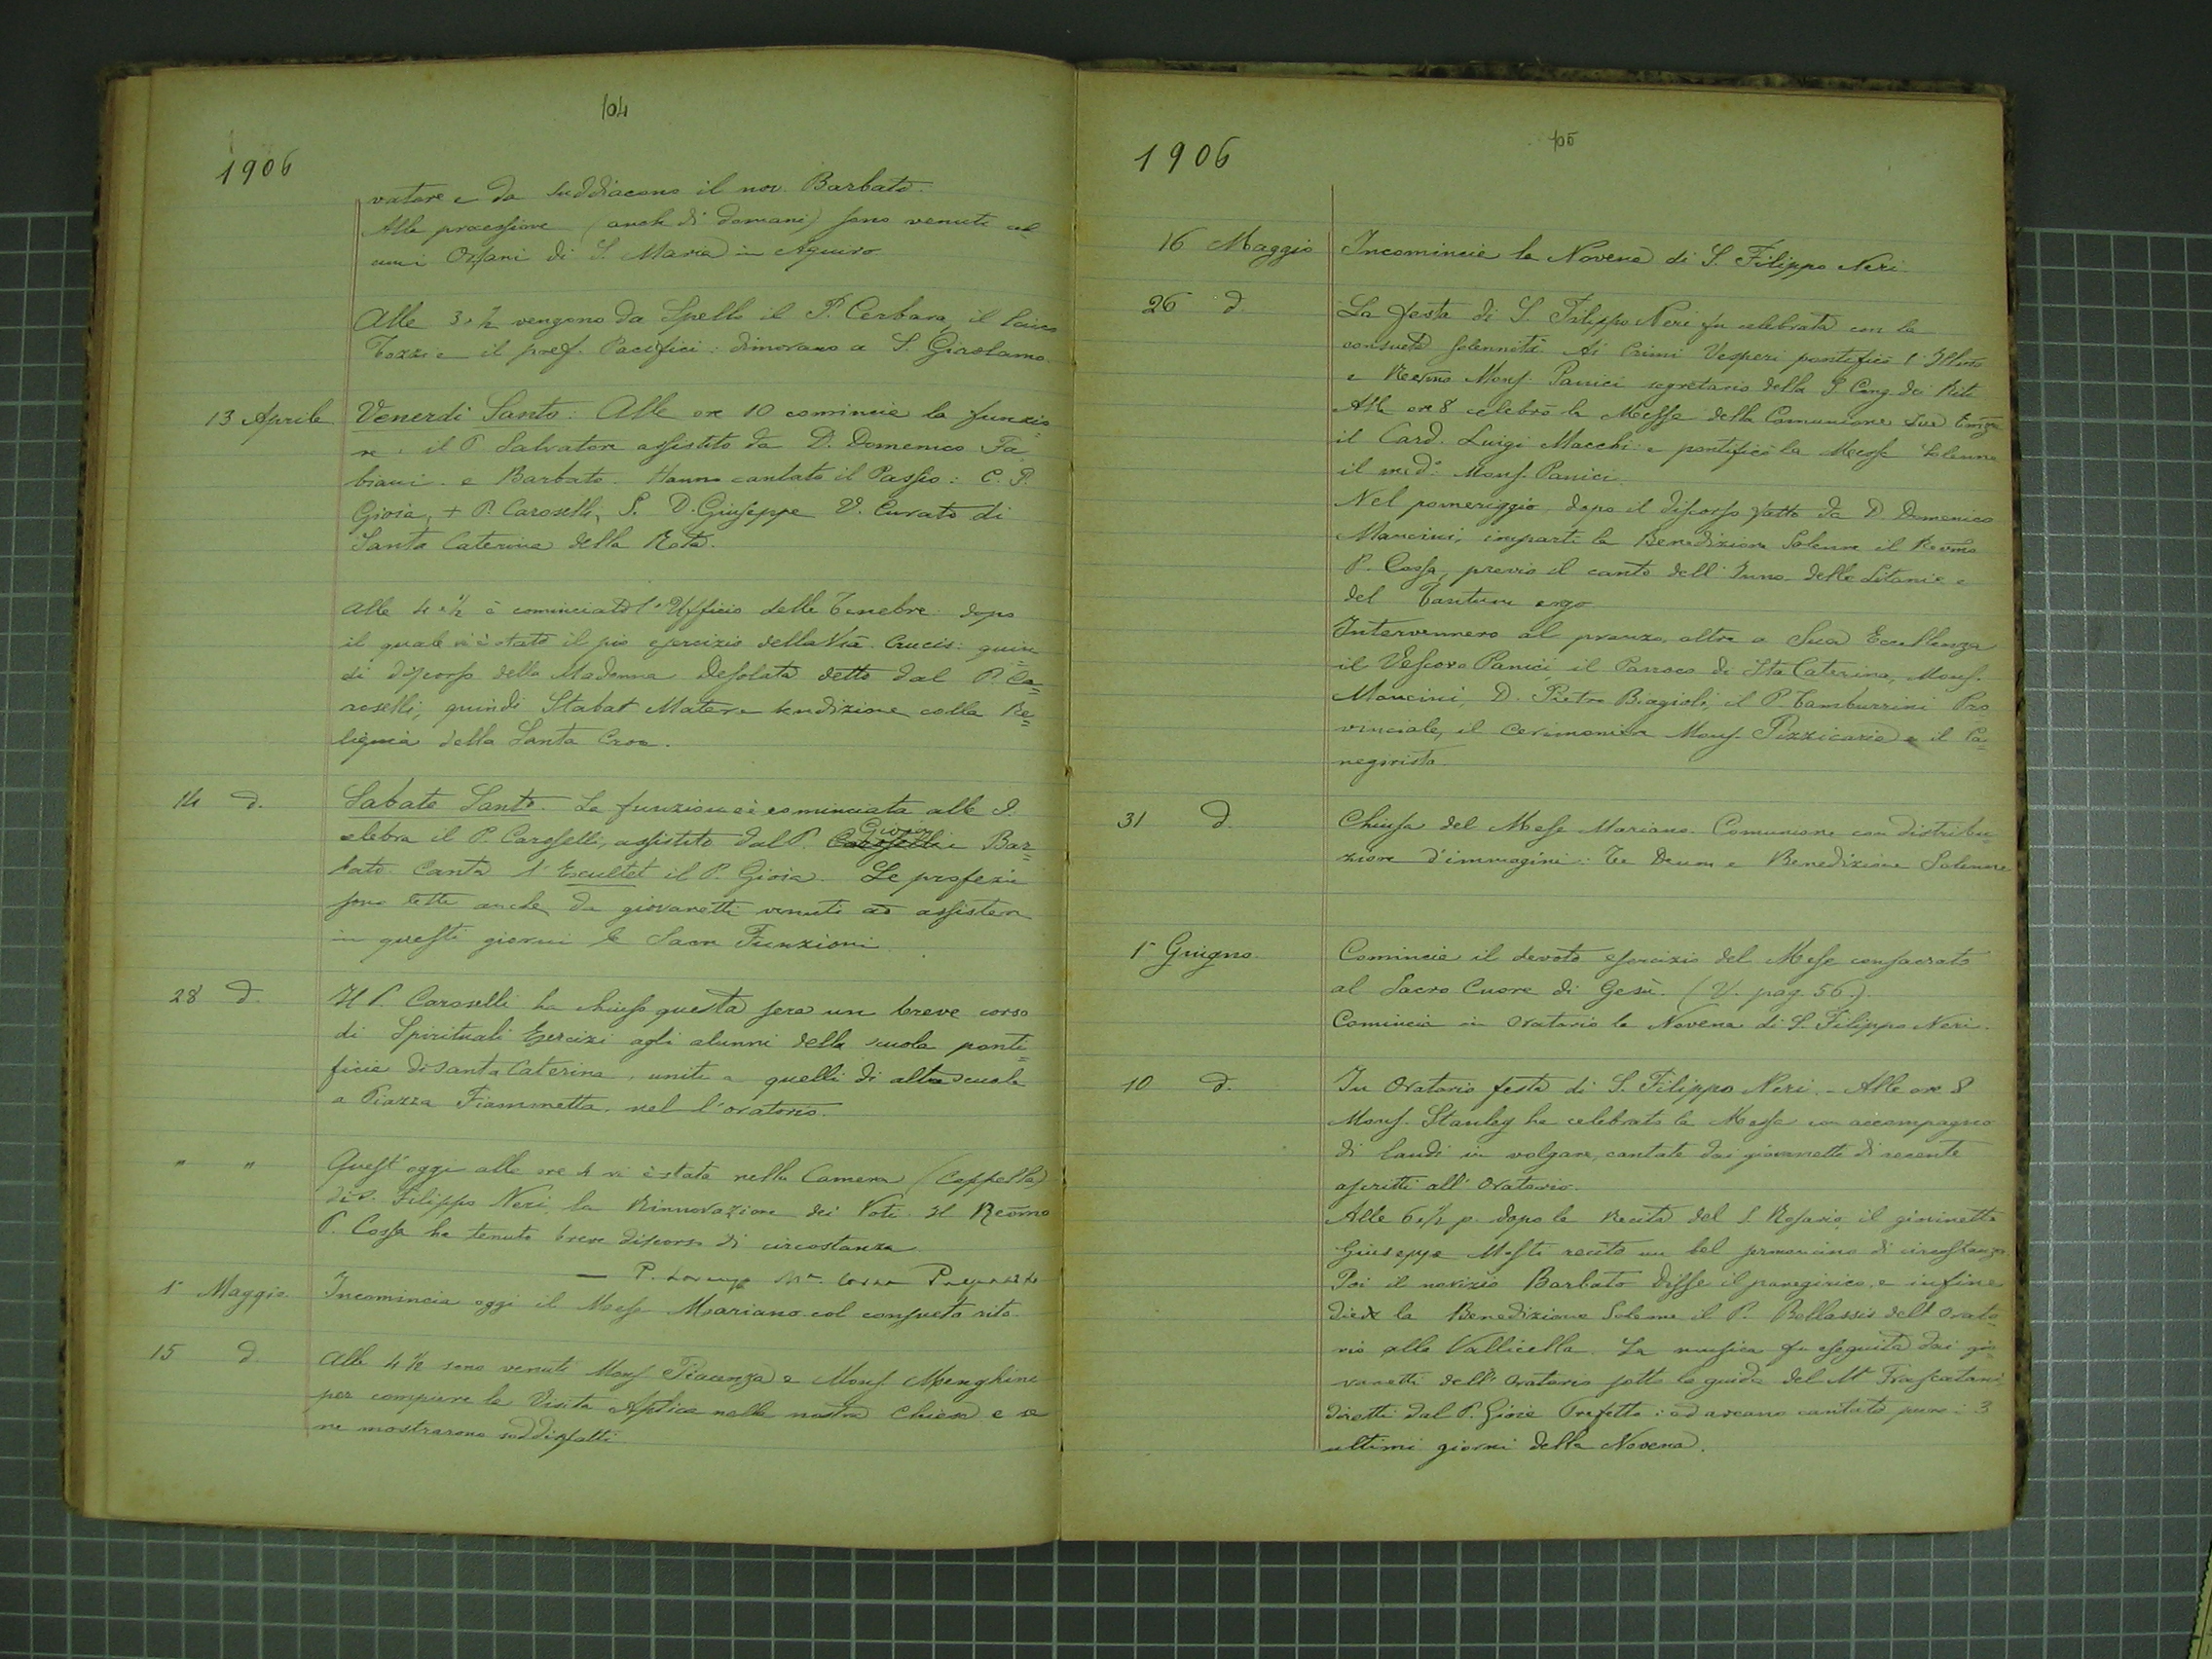 104
1906
vatore e da suddiacono il nov. Barbato.
Alla processione (anche di domani) sono venuti al
cuni Orfani di S. Maria in Aquiro
Alle 3 ½ vengono da Spello il P. Cerbara, il laico
Tozzi e il prof. Pacifici: dimorano a S. Girolamo.
13 Aprile Venerdi Santo: Alle ore 10 comincia la funzio
ne. il P Salvatore assistito da D. Domenico Fa
biani e Barbato. Hanno cantato il Passio: C. P.
Gioia, + P. Caroselli, S. D. Giuseppe V. Curato di
Santa Caterina della Rota.
Alle 4 e ½ è cominciato l'Ufficio delle Tenebre dopo
il quale vi è stato il pio esercizio della Via Crucis: quin
di discorso della Madonna Desolata detto dal P. Ca=
roselli, quindi Stabat Mater e benedizione colla Re=
liquia della Santa Croce.
14 d. Sabato Santo. La funzione è cominciata alle 8.
celebra il P. Carosselli, assistito dal P. Gioia e Bar=
bato. Canta l'Excultet il P. Gioia. Le profezie
sono lette anche da giovanetti venuti ad assistere
in questi giorni le Sacre Funzioni.
28 d. Il P. Caroselli ha chiuso questa sera un breve corso
di Spirituali Esercizi agli alunni della scuola ponti=
ficia di Santa Caterina, uniti a quelli di altra scuola
a Piazza Fiammetta, nel l'oratorio.
" " Quest'oggi alle ore 4 vi è stata nella Camera (Cappella)
di S. Filippo Neri, la Rinnovazione dei Voti. Il Reverendo
P. Cossa ha tenuto breve discorso di circostanza.
— P. Lorenzo Cossa
1° Maggio Incomincia oggi il Mese Mariano col consueto rito.
15 d. Alle 4 ½ sono venuti Mons Piacenza e Mons. Menghini
per compiere la Visita Aplica nella nostra Chiesa e se
ne mostrarono soddisfatti
105
1906
16 Maggio Incomincia la Novena di S. Filippo Neri
26 d. La festa di S. Filippo Neri fu celebrata con la
consueta solennità. Ai Primi Vesperi pontificò l'Illmo
e Revmo Mons. Panici segretario della S. Cong. dei Riti
Alle ore 8 celebrò la Messa della Comunione Sua Emza
il Card. Luigi Macchi e pontificò la Messa Solenne
il med° Mons. Panici.
Nel pomeriggio, dopo il discorso fatto da D. Domenico
Mancini, impartì la Benedizione Solenne il Revmo
P. Cossa, previo il canto dell'Inno delle Litanie e
del Tantum ergo
Intervennero al pranzo, oltre a Sua Eccellenza
il Vescovo Panici, il Parroco di Sta Caterina, Mons.
Mancini, D. Pietro Biagioli, il P. Tamburrini Pro
vinciale, il Cerimoniere Mons. Pizzicaria e il Pa=
negirista.
31 d. Chiusa del Mese Mariano. Comunione con distribu
zione d'immagini: Te Deum e Benedizione Solenne
1° Giugno. Comincia il devoto esercizio del Mese consacrato
al Sacro Cuore di Gesù. (V. pag 56.).
Comincia in Oratorio la Novena di S. Filippo Neri.
10 d. In Oratorio festa di S. Filippo Neri. - Alle ore 8
Mons. Stanley ha celebrato la Messa con accompagno
di laudi in volgare, cantate dai giovanetti di recente
ascritti all'Oratorio.
Alle 6 e ½ p. dopo la recita del S. Rosario il giovinetto
Giuseppe Mesti recitò un bel sermoncino di circostanza
Poi il novizio Barbato disse il panegirico, e infine
diede la Benedizione Solenne il P. Bellassis dell'Orato=
rio alla Vallicella. La musica fu eseguita dai gio=
vanetti dell'Oratorio sotto la guida del M° Frascatani
diretti dal P. Gioia Prefetto: ed aveano cantato pure i 3
ultimi giorni della Novena.